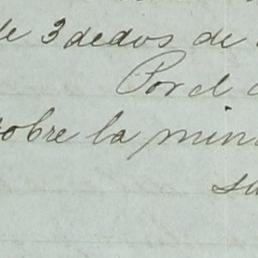 de 3 dedos de
Por el
sobre la min
su